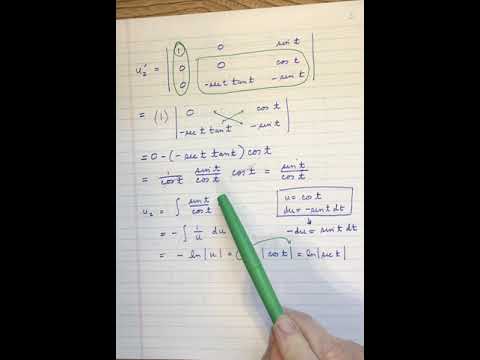 u₂' = | 1 0 sin t |
| 0 0 cos t |
| 0 -sec t tan t -sin t |
= (1) | 0 cos t |
| -sec t tan t -sin t |
= 0 - (-sec t tan t) cos t
= 1/cos t sin t/cos t cos t = sin t/cos t
u₂ = ∫ sin t/cos t
u = cos t
du = -sin t dt
= - ∫ 1/u du
-du = sin t dt
= - ln|u| = |cos t| = ln|sec t|